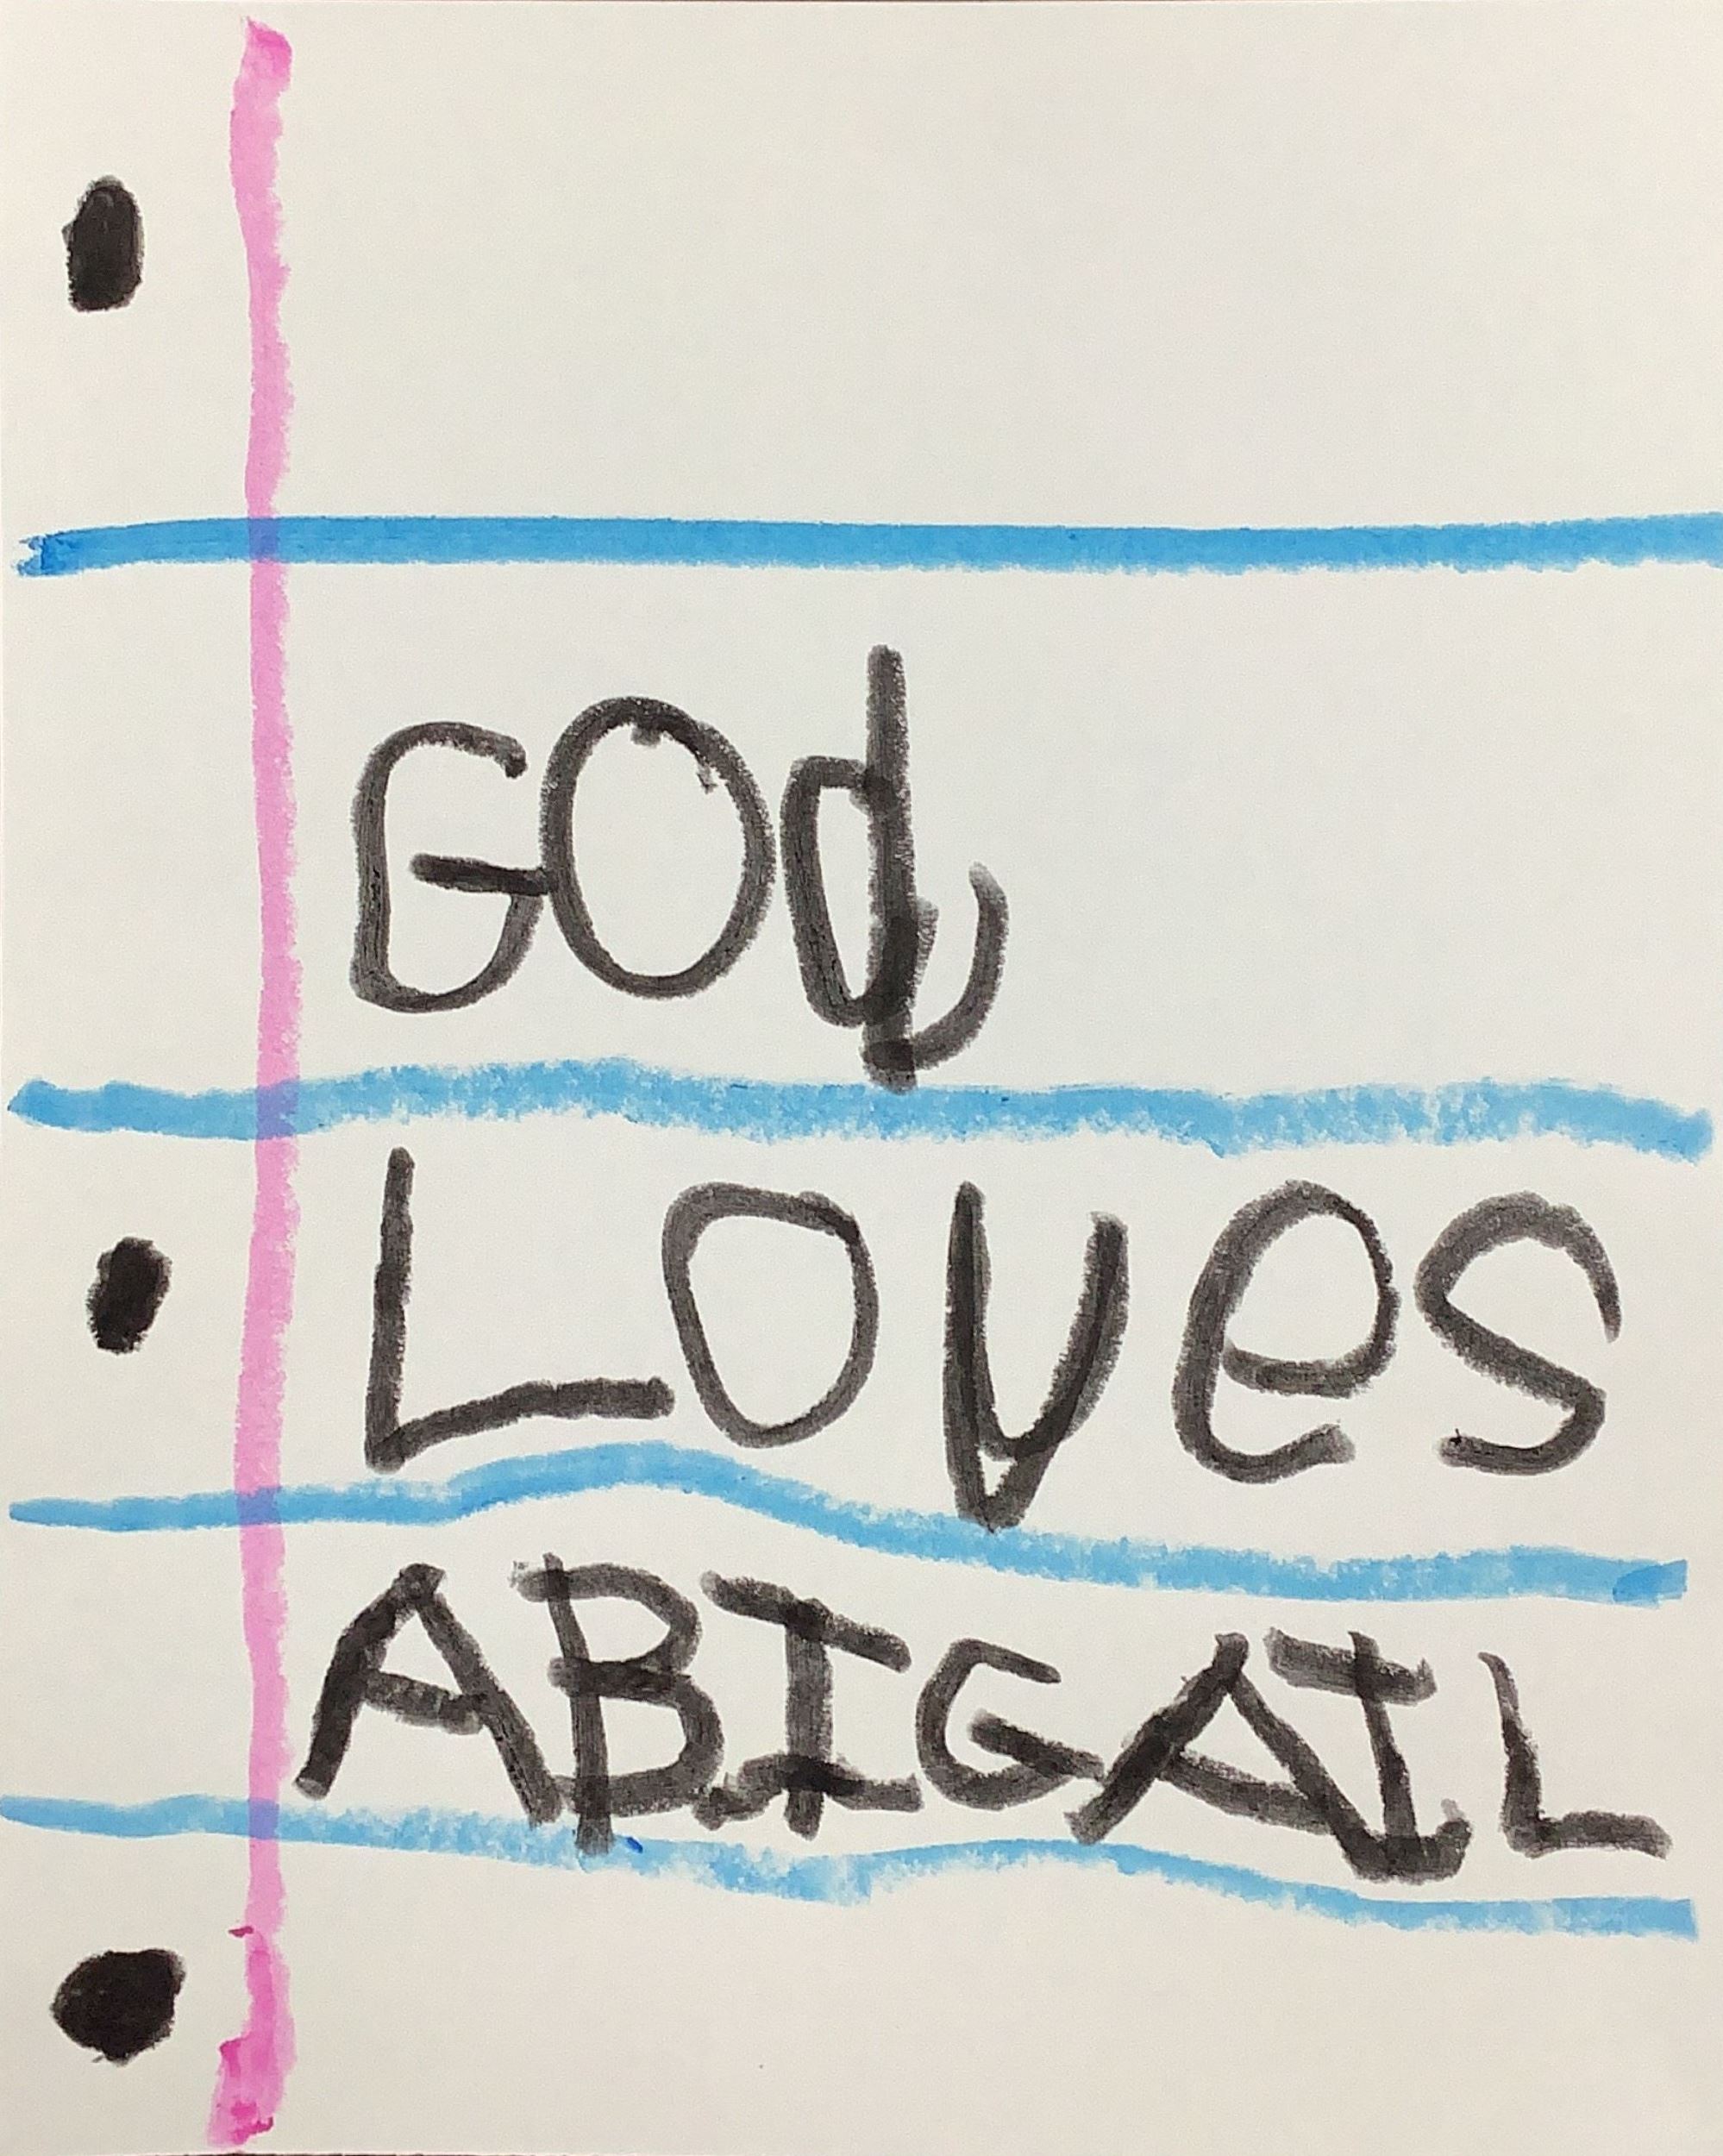 GOd
Loves
ABIGAIL